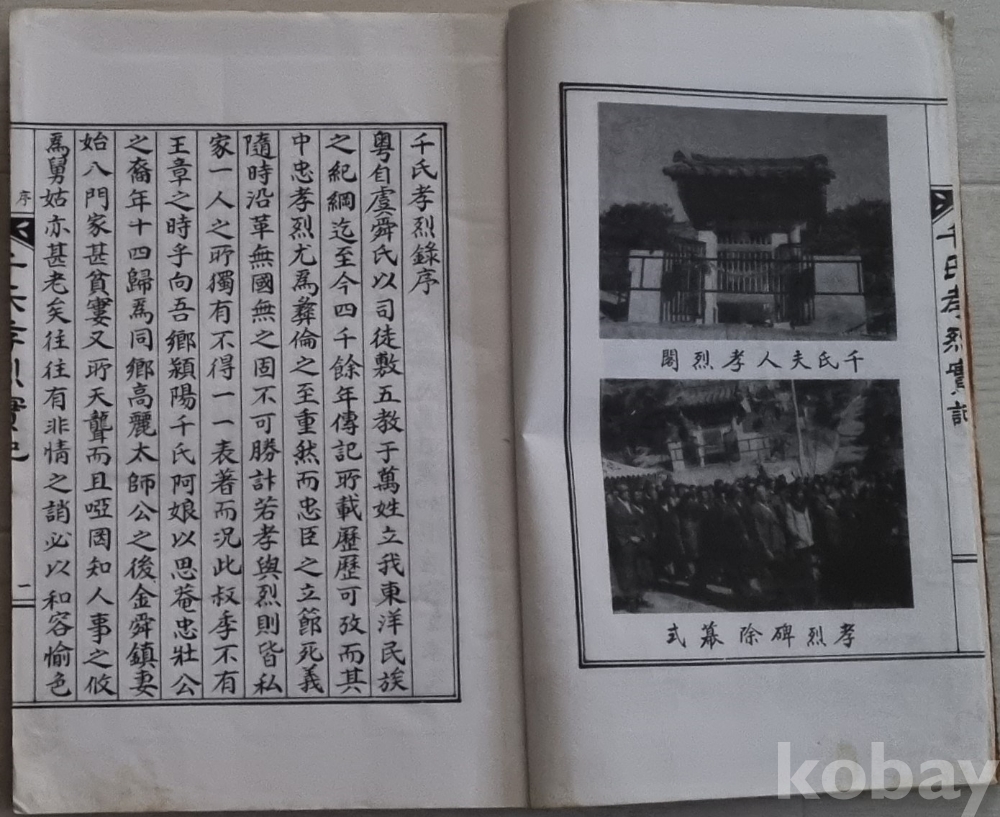 千氏孝烈實記
千氏夫人孝烈閣
孝烈碑除幕式
千氏孝烈錄序
粤自虞舜氏以司徒敷五教于萬姓立我東洋民族
之紀綱迄至今四千餘年傳記所載歷歷可攷而其
中忠孝烈尤爲彝倫之至重然而忠臣之立節死義
隨時沿革無國無之固不可勝計若孝與烈則皆私
家一人之所獨有不得一一表著而況此叔季不有
王章之時乎向吾鄉潁陽千氏阿娘以思菴忠壯公
之裔年十四歸爲同鄉高麗太師公之後金舜鎮妻
始入門家甚貧窶又所天聾而且啞罔知人事之攸
爲舅姑亦甚老矣往往有非情之誚必以和容愉色
序
千氏孝烈實記
一
kobay